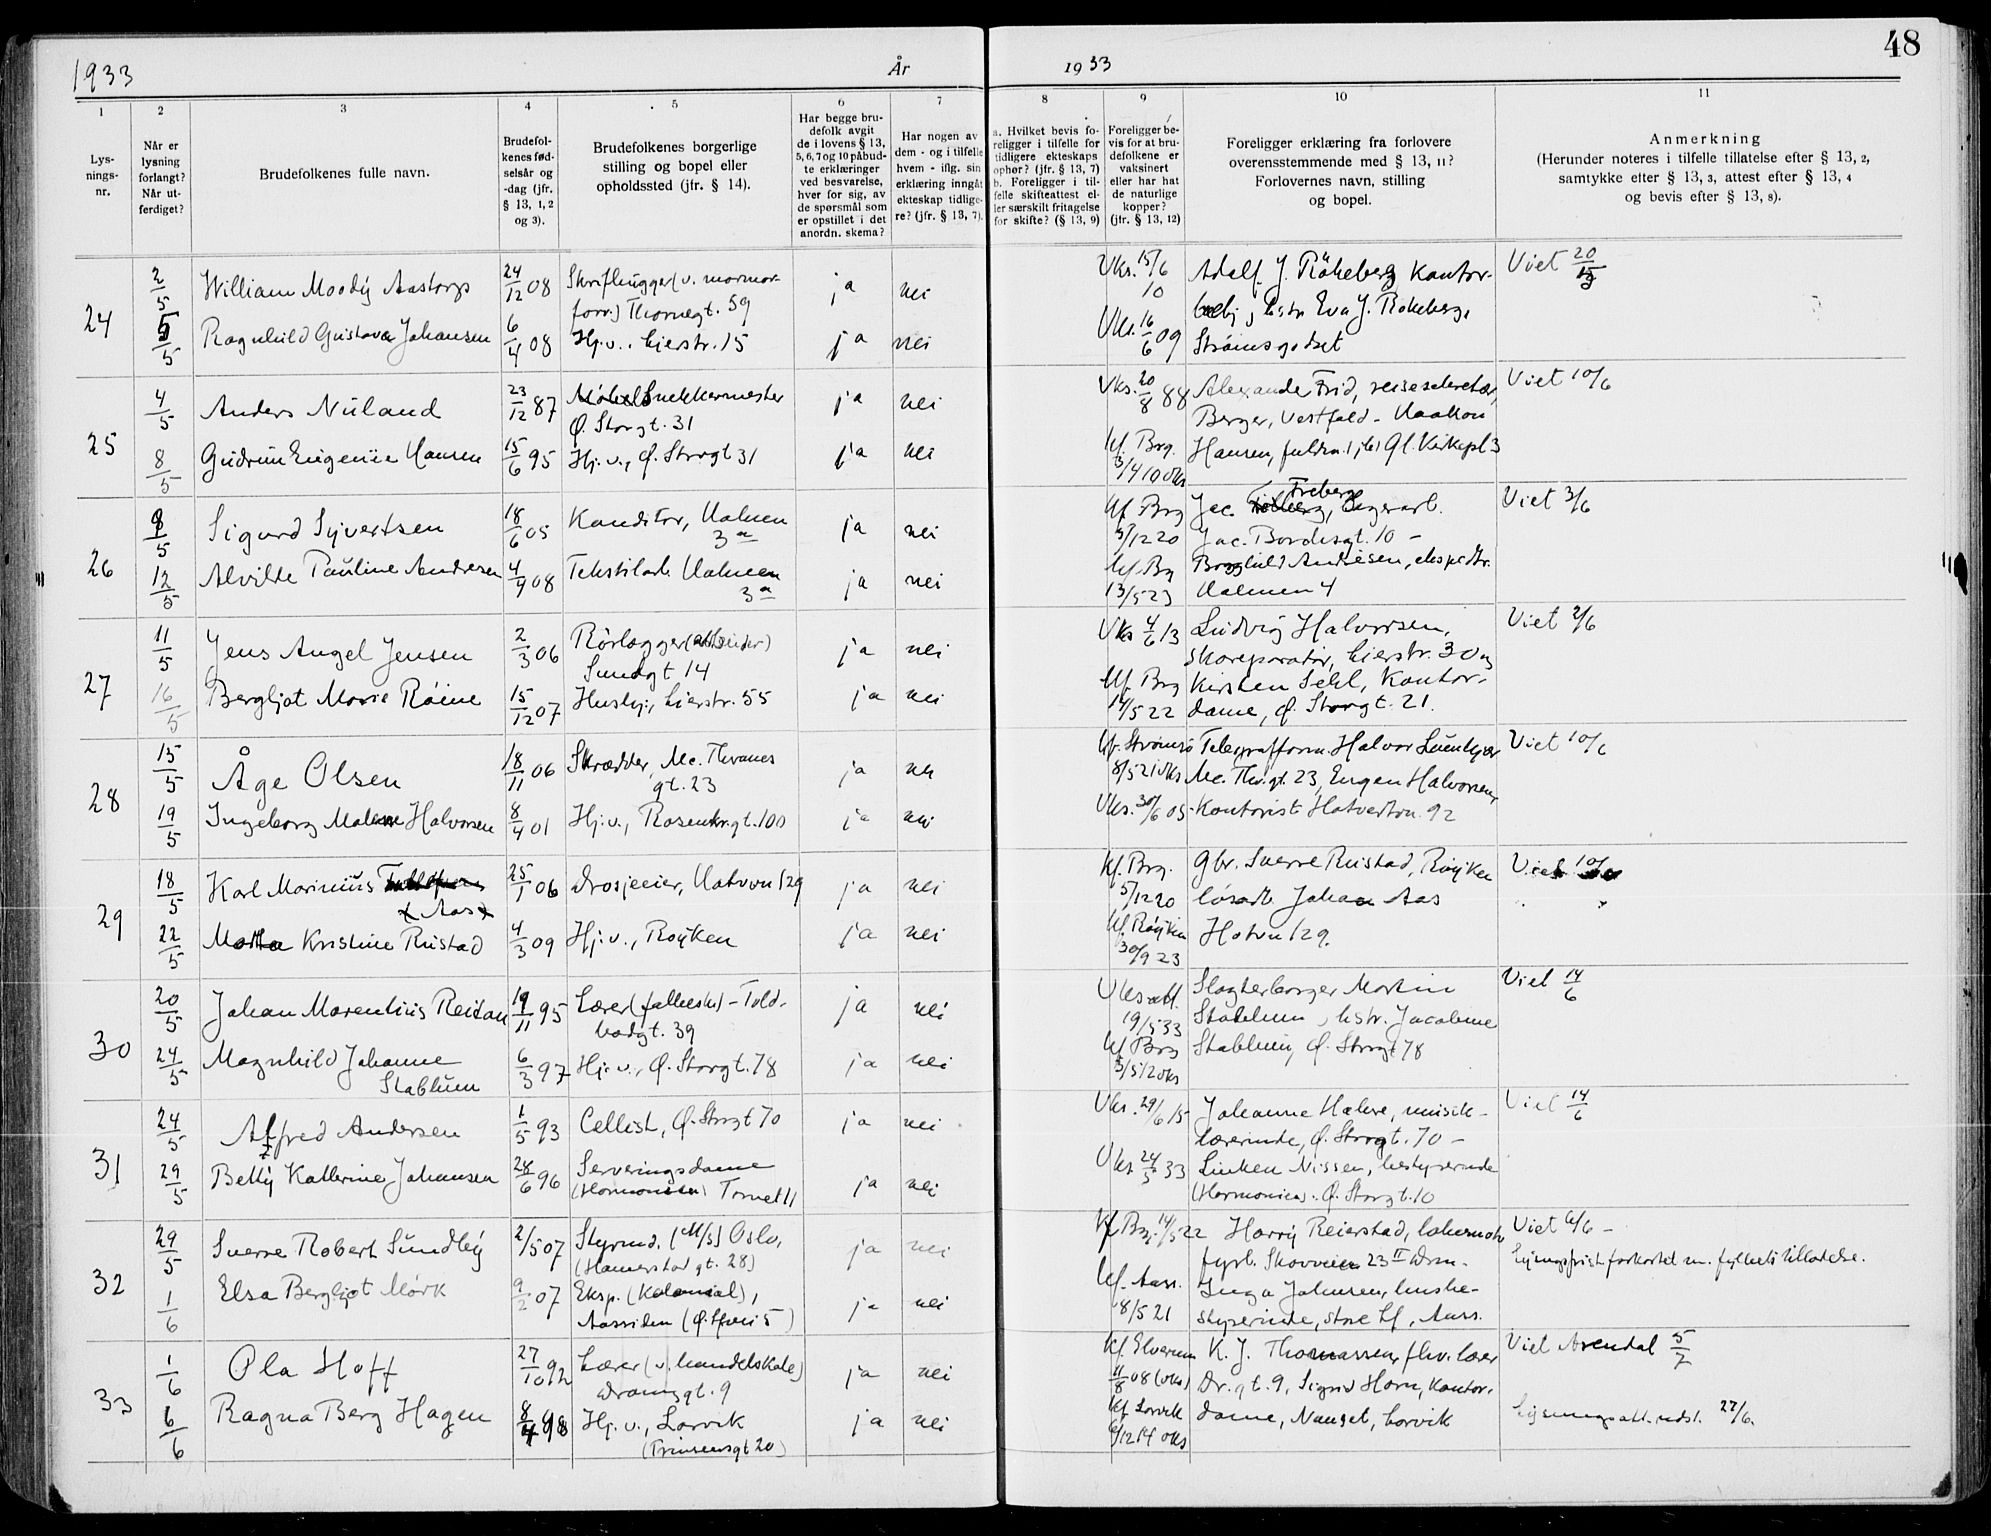 1933 År 1933 48
1 2 3 4 5 6 7 8 9 10 11
Lysningsnr.
Når er lysning forlangt? Når utferdiget?
Brudefolkenes fulle navn.
Brudefolkenes fødselsår og -dag (jfr. § 13, 1, 2 og 3).
Brudefolkenes borgerlige stilling og bopel eller opholdssted (jfr. § 14).
Har begge brudefolk avgit de i lovens § 13, 5, 6, 7 og 10 påbudte erklæringer ved besvarelse, hver for sig, av de spørsmål som er opstillet i det anordn. skema?
Har nogen av dem - og i tilfelle hvem - iflg. sin erklæring inngått ekteskap tidligere? (jfr. § 13, 7).
a. Hvilket bevis foreligger i tilfelle for tidligere ekteskaps ophør? (jfr. § 13, 7)
b. Foreligger i tilfelle skifteattest eller særskilt fritagelse for skifte? (§ 13, 9)
Foreligger bevis for at brudefolkene er vaksinert eller har hat de naturlige kopper? (jfr. § 13, 12)
Foreligger erklæring fra forlovere overensstemmende med § 13, 11? Forlovernes navn, stilling og bopel.
Anmerkning
(Herunder noteres i tilfelle tillatelse efter § 13, 2, samtykke efter § 13, 3, attest efter § 13, 4 og bevis efter § 13, 8).
24
2/5 William Moody Aastorp 24/12 08 Skrifthugger (v. marmorforr.) Thornegt. 59 ja nei Vks. 15/6 10 Adolf J. Rökeberg Kontor-
5/5 Ragnhild Gustava Johansen 6/4 08 Hj.v., Lierstr. 15 ja nei Vks. 16/6 09 hstr. Eva J. Rokeberg, Strømsgodset
Viet 20/
25
4/5 Anders Nuland 23/12 87 Møbelsnekkermester Ø. Storgt. 31 ja nei Vks. 20/8 88 Alexander Frid, reisesekretær, Berger, Vestfold - Haakon
8/5 Gudrun Eugenie Hansen 15/6 95 Hj.v., Ø. Storgt 31 ja nei kf. Brg. 3/4 10 vks Hansen, Gl. Kirkepl 3
Viet 10/6
26
8/5 Sigurd Syvertsen 18/6 05 Konditor, Holmen 3a ja nei kf Brg 5/12 20 Jac. Freberg, lagerarb. Jac. Borchsgt. 10 -
12/5 Alvilde Pauline Andresen 4/9 08 Tekstilarb. Holmen 3a ja nei kf. Brg 13/5 23 Borghild Andresen, ekspedtr. Holmen 4
Viet 3/6
27
11/5 Jens Angel Jensen 2/3 06 Rørlægger (arbeider) Sundgt 14 ja nei Vks 4/6 13 Ludvig Halvorsen, skoreparatør, Lierstr. 30
16/5 Bergljot Marie Röine 15/12 07 Lierstr. 55 ja nei kf. Brg 14/5 22 Kirsten Sell, Kontordame, Ø. Storgt. 21.
Viet 2/6
28
15/5 Åge Olsen 18/11 06 Skrædder, Mc. Thranesgt. 23 ja nei kf. Strømsø 8/5 21 vks Telegrafform. Halvor Mc. Thr.gt. 23, Eugen Halvorsen,
19/5 Ingeborg Malene Halvorsen 8/4 01 Hj.v., Rosenkr.gt. 100 ja nei Vks. 30/6 05 Kontorist 92
Viet 10/6
29
18/5 Karl Marinius Aas 25/1 06 Drosjeeier, Hotvvn 129 ja nei kf. Brg. 5/12 20 Gbr. Sverre Rustad, Röyken løsarb. Johan Aas
22/5 Martha Kristine Rustad 4/3 09 Hj.v., Royken ja nei kf. Røyken 30/9 23 Hotvn 129.
Viet 10/6
30
20/5 Johan Marentius Reitan 19/11 95 Lærer (folkesk.) - Toldbodgt. 39 ja nei Vksatt. 19/5 33 Slagterborger Martin Stablum, hstr. Jacobine
24/5 Magnhild Johanne Stablum 6/3 97 Hj.v., Ø. Storgt. 78 ja nei kf Brg 5/5 12 vks Stablum, Ø. Storgt 78
Viet 14/6
31
24/5 Alfred Andersen 1/5 93 Cellist, Ø. Storgt 70 ja nei Vks. 29/6 15 Johanne musiklærerinde, Ø. Storgt. 70 -
29/5 Betty Katherine Johansen 28/6 96 Serveringsdame (Harmonien) Tomtet 11 ja nei Vks 24/5 33 Linken Nissen, bestyrerinde (Harmonien) Ø. Storgt. 10
Viet 14/6
32
29/5 Sverre Robert Sundby 2/5 07 Styrmd. (M/S) Oslo, (Hamerstad gt. 28) ja nei kf Brg. 14/5 22 Harry Reierstad, lokomotivfyrb. Skovveien 23 II Drm.
1/6 Elsa Bergljot Mörk 9/2 07 Eksp. (Kolonial), Aassiden ja nei kf. Aass. 18/5 21 Inga Johnsen, husbestyrerinde, Aass.
Viet 6/6 -
Lysningsfrist forkortet m. fylkets tillatelse.
33
1/6 Ola Hoff 27/10 92 Lærer (v. handelsskole) Dramgt. 9 ja nei kf. Elverum 11/8 08 (vks) K. J. Thomassen, fhv. lærer Dr.gt. 9, Sigrid Horn, kontordame,
6/6 Ragna Berg Hagen 8/4 98 Hj.v., Larvik ja nei kf Larvik 6/12 14 vks Nanset, Larvik
Viet Arendal 5/7
Lysningsatt. 27/6.